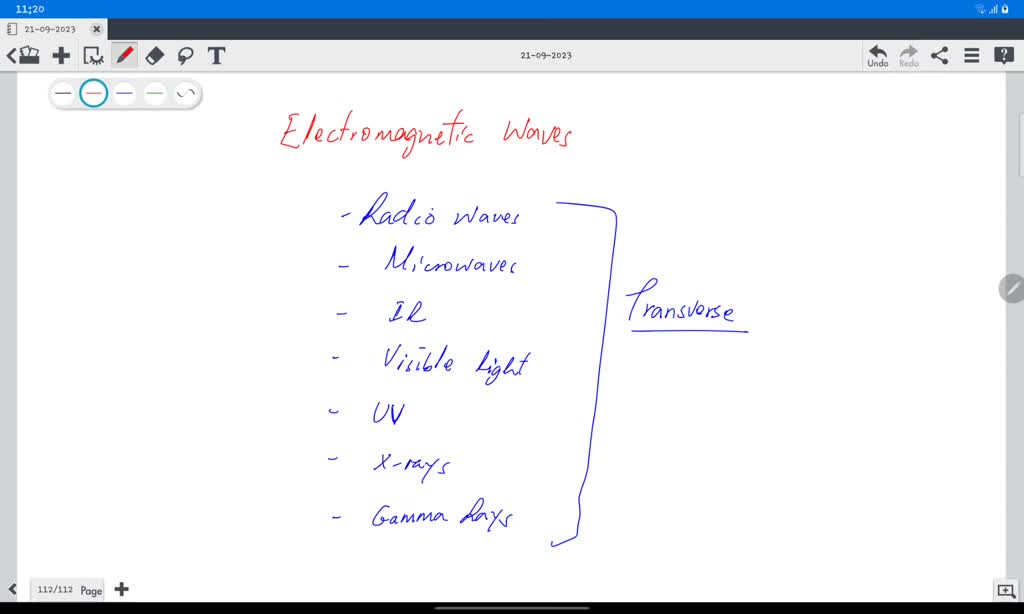 11:20
21-09-2023
T
21-09-2023
Undo
Redo
Electromagnetic Waves
- Radio Waves
- Microwaves
- IR
- Visible light
- UV
- X-rays
- Gamma Rays
Transverse
112/112 Page